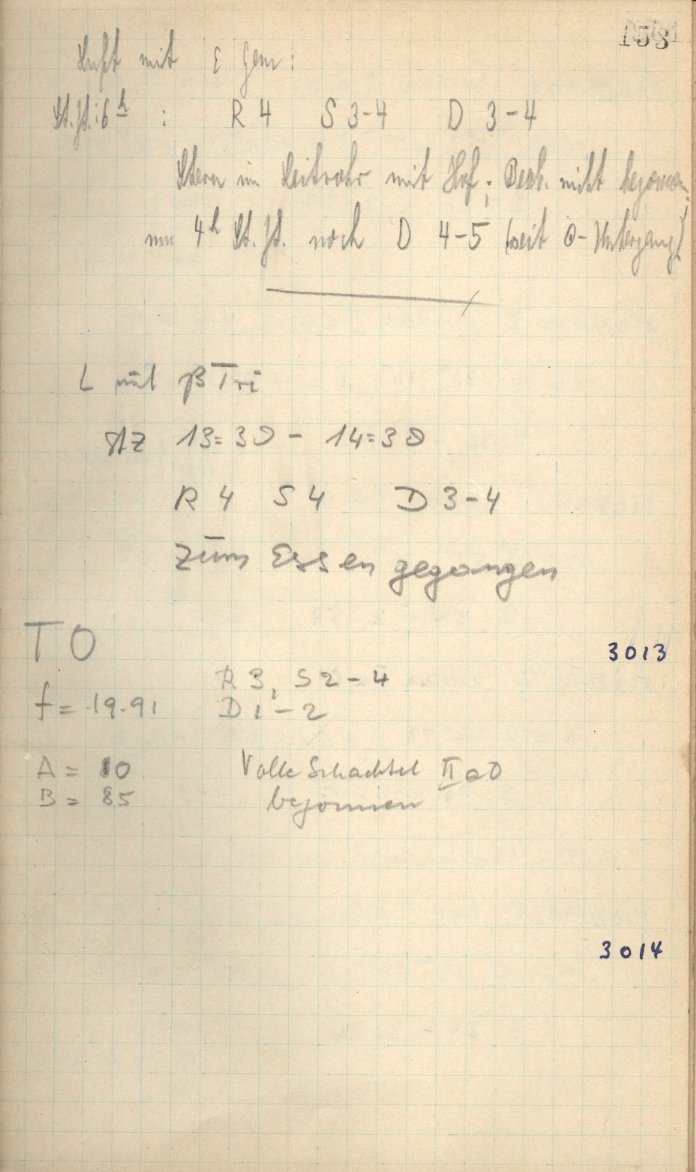 158
Luft mit ε Gem:
St.Zt. 6h : R 4 S 3-4 D 3-4
Stern im Leitrohr mit Hof; Beob. nicht begonnen.
um 4h St.Zt. noch D 4-5 (seit ⊙-Untergang)
L mit β Tri
StZ 13=30 - 14=30
R 4 S 4 D 3-4
Zum Essen gegangen
TO
3013
R 3, S 2-4
f = 19.91 D 1-2
A = 10 Volle Schachtel II a O
B = 85 begonnen
3014